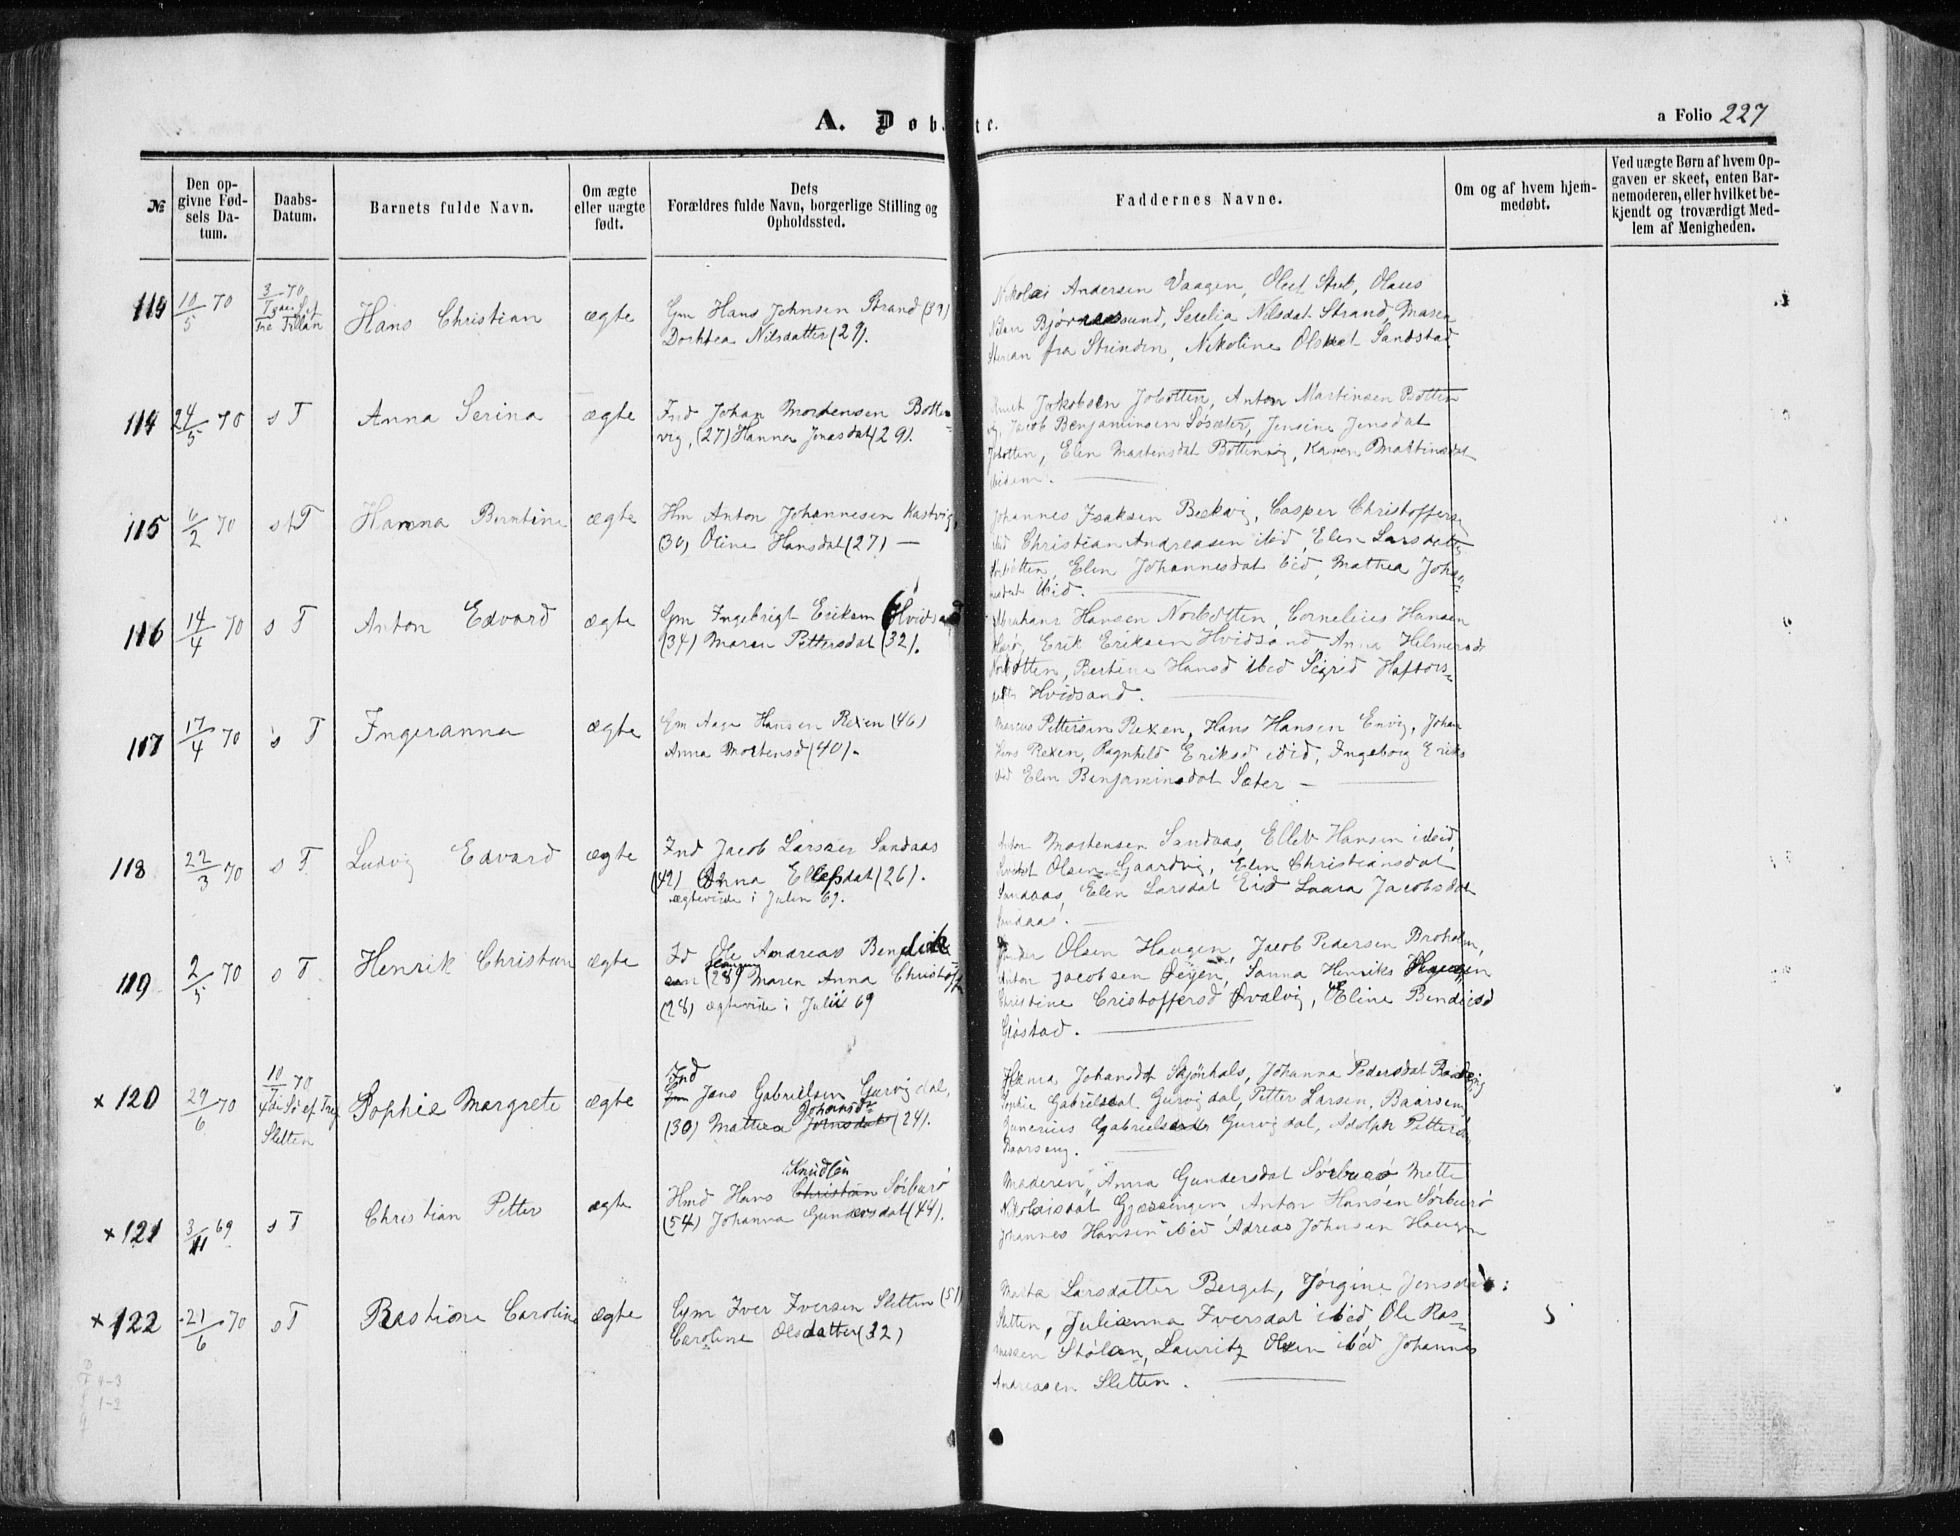 A. Døbte.
a Folio 227
№
Den opgivne Fødsels Datum.
Daabs-Datum.
Barnets fulde Navn.
Om ægte eller uægte født.
Dets Forældres fulde Navn, borgerlige Stilling og Opholdssted.
Faddernes Navne.
Om og af hvem hjemmedøbt.
Ved uægte Børn af hvem Opgaven er skeet, enten Barnemoderen, eller hvilket bekjendt og troværdigt Medlem af Menigheden.
10/5 70
3/7 70
Hans Christian
ægte
Gm Hans Johnsen Strand (39)
Dorthea Nilsdatter (29).
Nikolai Andersen Vaagen, Oluf Stub, Olaus
Bjørnaasund, Serelia Nilsdat Strand, Maren
fra Strinden, Nikoline Olsdat Sandstad
114
24/5 70
s T
Anna Serina
ægte
Ind Johan Mortensen Botten-
vig, (27) Hanna Jonasdat (29).
Knut Jakobsen Jobotten, Anton Martinsen Botten
vig, Jacob Benjaminsen Søsæter, Jensine Jensdat
Jobotten, Elen Martensdat Bottenvig, Karen Martinsdat
ibidem.
115
6/2 70
s T
Hanna Berntine
ægte
Hm Anton Johannesen Kastvig,
(30) Oline Hansdat (27) —
Johannes Isaksen Bekvig, Casper Christoffers
ibid Christian Andreasen ibid, Elen Larsdatt
Norbotten, Elen Johannesdat ibid, Mathea Johan
nesdat ibid.
116
14/4 70
s T
Anton Edvard
ægte
Gm Ingebrigt Eriksen Hvidsand
(34) Maren Pettersdat (32).
Abraham Hansen Norbotten, Cornelius Hansen
Erik Eriksen Hvidsand Anna Helmersd
Norbotten, Bertine Hansd ibid Sigrid Haftors-
datt Hvidsand.
117
17/4 70
s T
Ingeranna
ægte
Gm Aage Hansen Rexen (46)
Anna Mortensd (40).
Marcus Pettersen Rexen, Hans Hansen Envig, Johan
Hans Rexen, Ragnhild Eriksd ibid, Ingeborg Eriks
ibid Elen Benjaminsdat Sæter —
118
22/3 70
s T.
Ludvig Edvard
ægte
Ind Jacob Larsen Sandaas
(42) Anna Ellefsdat (26).
ægteviede i Julen 69.
Anton Mortensen Sandaas, Ellev Hansen ibid,
Olsen Gaardvig, Elen Christiansdat
Sandaas, Elen Larsdat Eid Laura Jacobsdat
Sandaas.
119
2/5 70
s T.
Henrik Christian
ægte
Id Ole Andreas Bendik-
sen Haugen (28) Maren Anna Christoff
(28) ægteviede i Julii 69
Peder Olsen Haugen, Jacob Pedersen Broholm,
Anton Jacobsen Øeyen, Sanna Henriks Haugen
Christine Cristoffersd Qvalvig, Eline Bendixsd
Grøstad.
× 120
29/6 70
10/7 70
4de S ef Tref
Sletten
Sophie Margrete
ægte
Ind
Gm Jens Gabrielsen Gurvigdal,
Johansd
(30) Mathea Jørnsdat (24).
Hanna Johansdt Skjønhals, Johanna Pedersdat
Sophie Gabrielsdat Gurvigdal, Petter Larsen, Baarseng
Gunerius Gabrielsen Gurvigdal, Adolph Petters
Baarseng.
× 121
3/11 69
s T
Christian Petter
ægte
Knudsen
Hmd Hans Christian Sörburö
(54) Johanna Gundersdat (44).
Moderen, Anna Gundersdat Sörburö Mette
Nikolaisdat Gjessingen, Anton Hansen Sørburö
Johannes Hansen ibid Adreas Johnsen Haugen
× 122
21/6 70
s T
Bastiane Caroline
ægte
Gm Iver Iversen Sletten (51)
Caroline Olsdatter (32)
Marta Larsdatter Berget, Jørgine Jensdat:
Sletten, Julianna Iversdat ibid, Ole Ras-
mussen Stølan, Lauritz Olsen ibid Johannes
Andreasen Sletten.
4-3
1-2